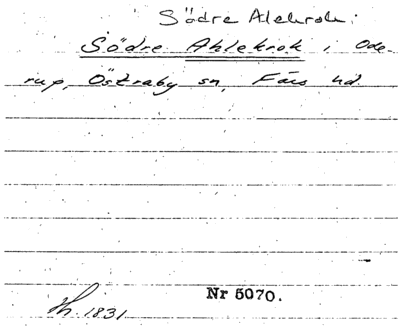 Södre Alekrok:
Södre Ahlekrok i Ode-
rup, Östraby sn, Färs hd.
Nr 5070.
1831